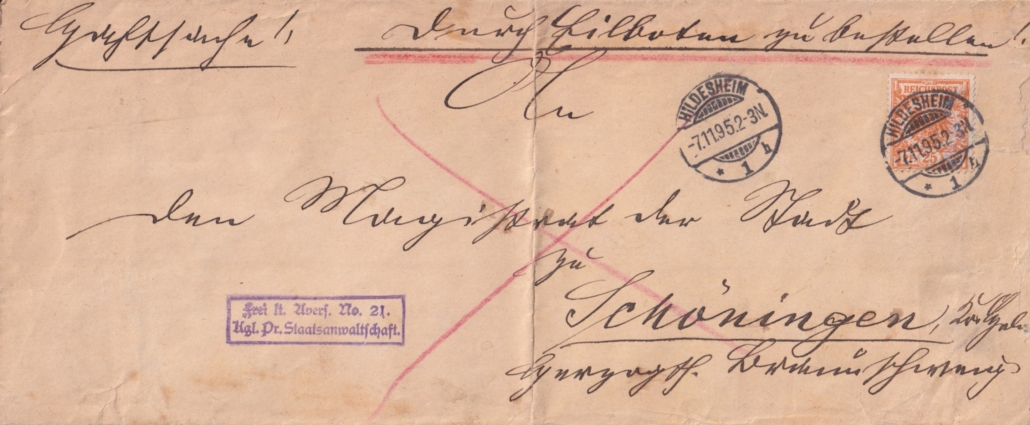 Haftsache! Durch Eilboten zu bestellen!
An
den Magistrat der Stadt
zu
Schöningen,
Herzogth. Braunschweig
Frei lt. Avers. No. 21.
Kgl. Pr. Staatsanwaltschaft.
HILDESHEIM
-7.11.95.2-3N.
* 1 h
REICHSPOST
25
HILDESHEIM
-7.11.95.2-3N.
* 1 h